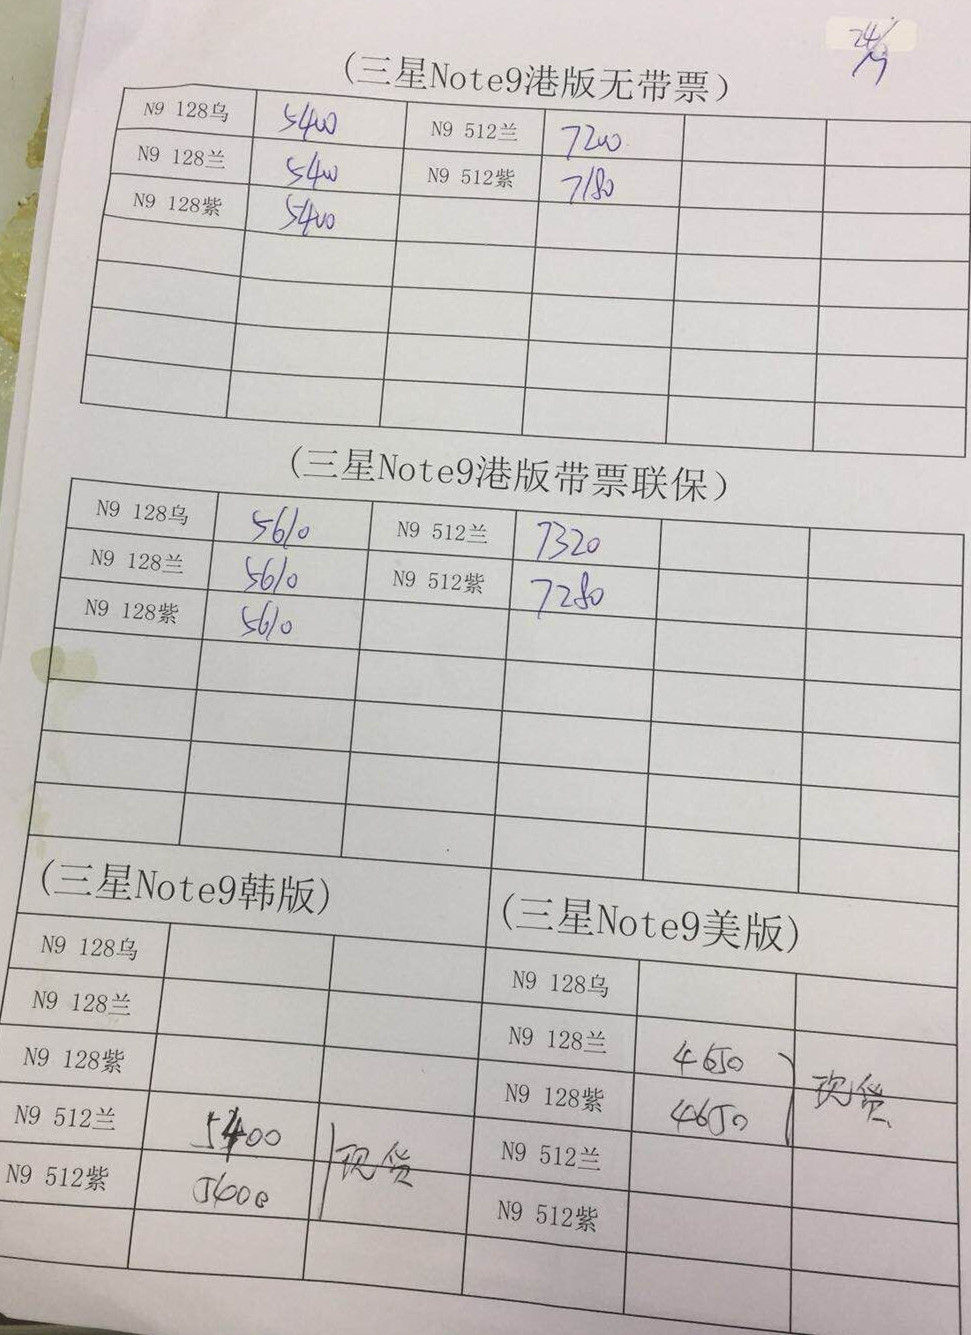 24/9
(三星Note9港版无带票)
N9 128乌 5400 N9 512兰 7200
N9 128兰 5400 N9 512紫 7180
N9 128紫 5400
(三星Note9港版带票联保)
N9 128乌 5610 N9 512兰 7320
N9 128兰 5610 N9 512紫 7280
N9 128紫 5610
(三星Note9韩版)
N9 128乌
N9 128兰
N9 128紫
N9 512兰 5400 现货
N9 512紫 5400
(三星Note9美版)
N9 128乌
N9 128兰 4650 现货
N9 128紫 4650
N9 512兰
N9 512紫